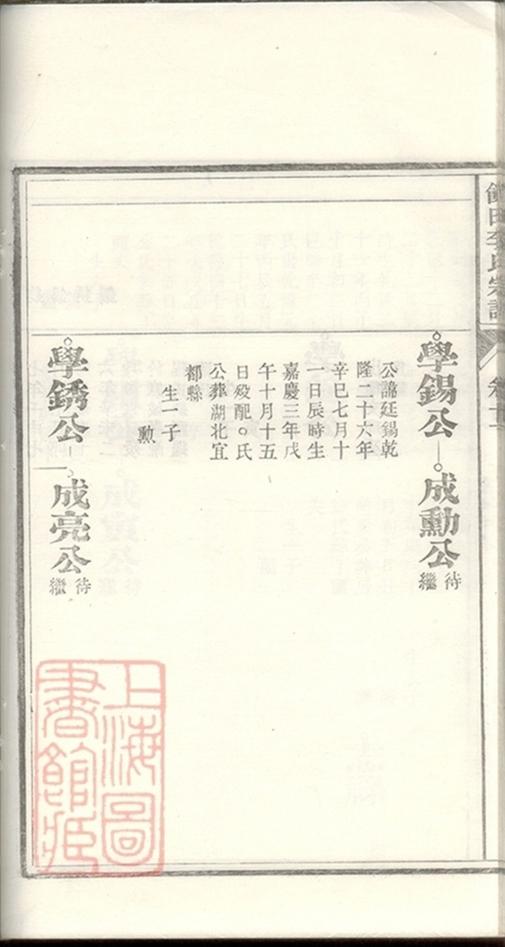 田李氏宗譜
卷十一
學錫公
成勳公
待繼
公諱廷錫乾
隆二十六年
辛巳七月十
一日辰時生
嘉慶三年戊
午十月十五
日歿配○氏
公葬湖北宜
都縣
生一子
勳
學銹公
成亮公
待繼
上海圖
書館藏